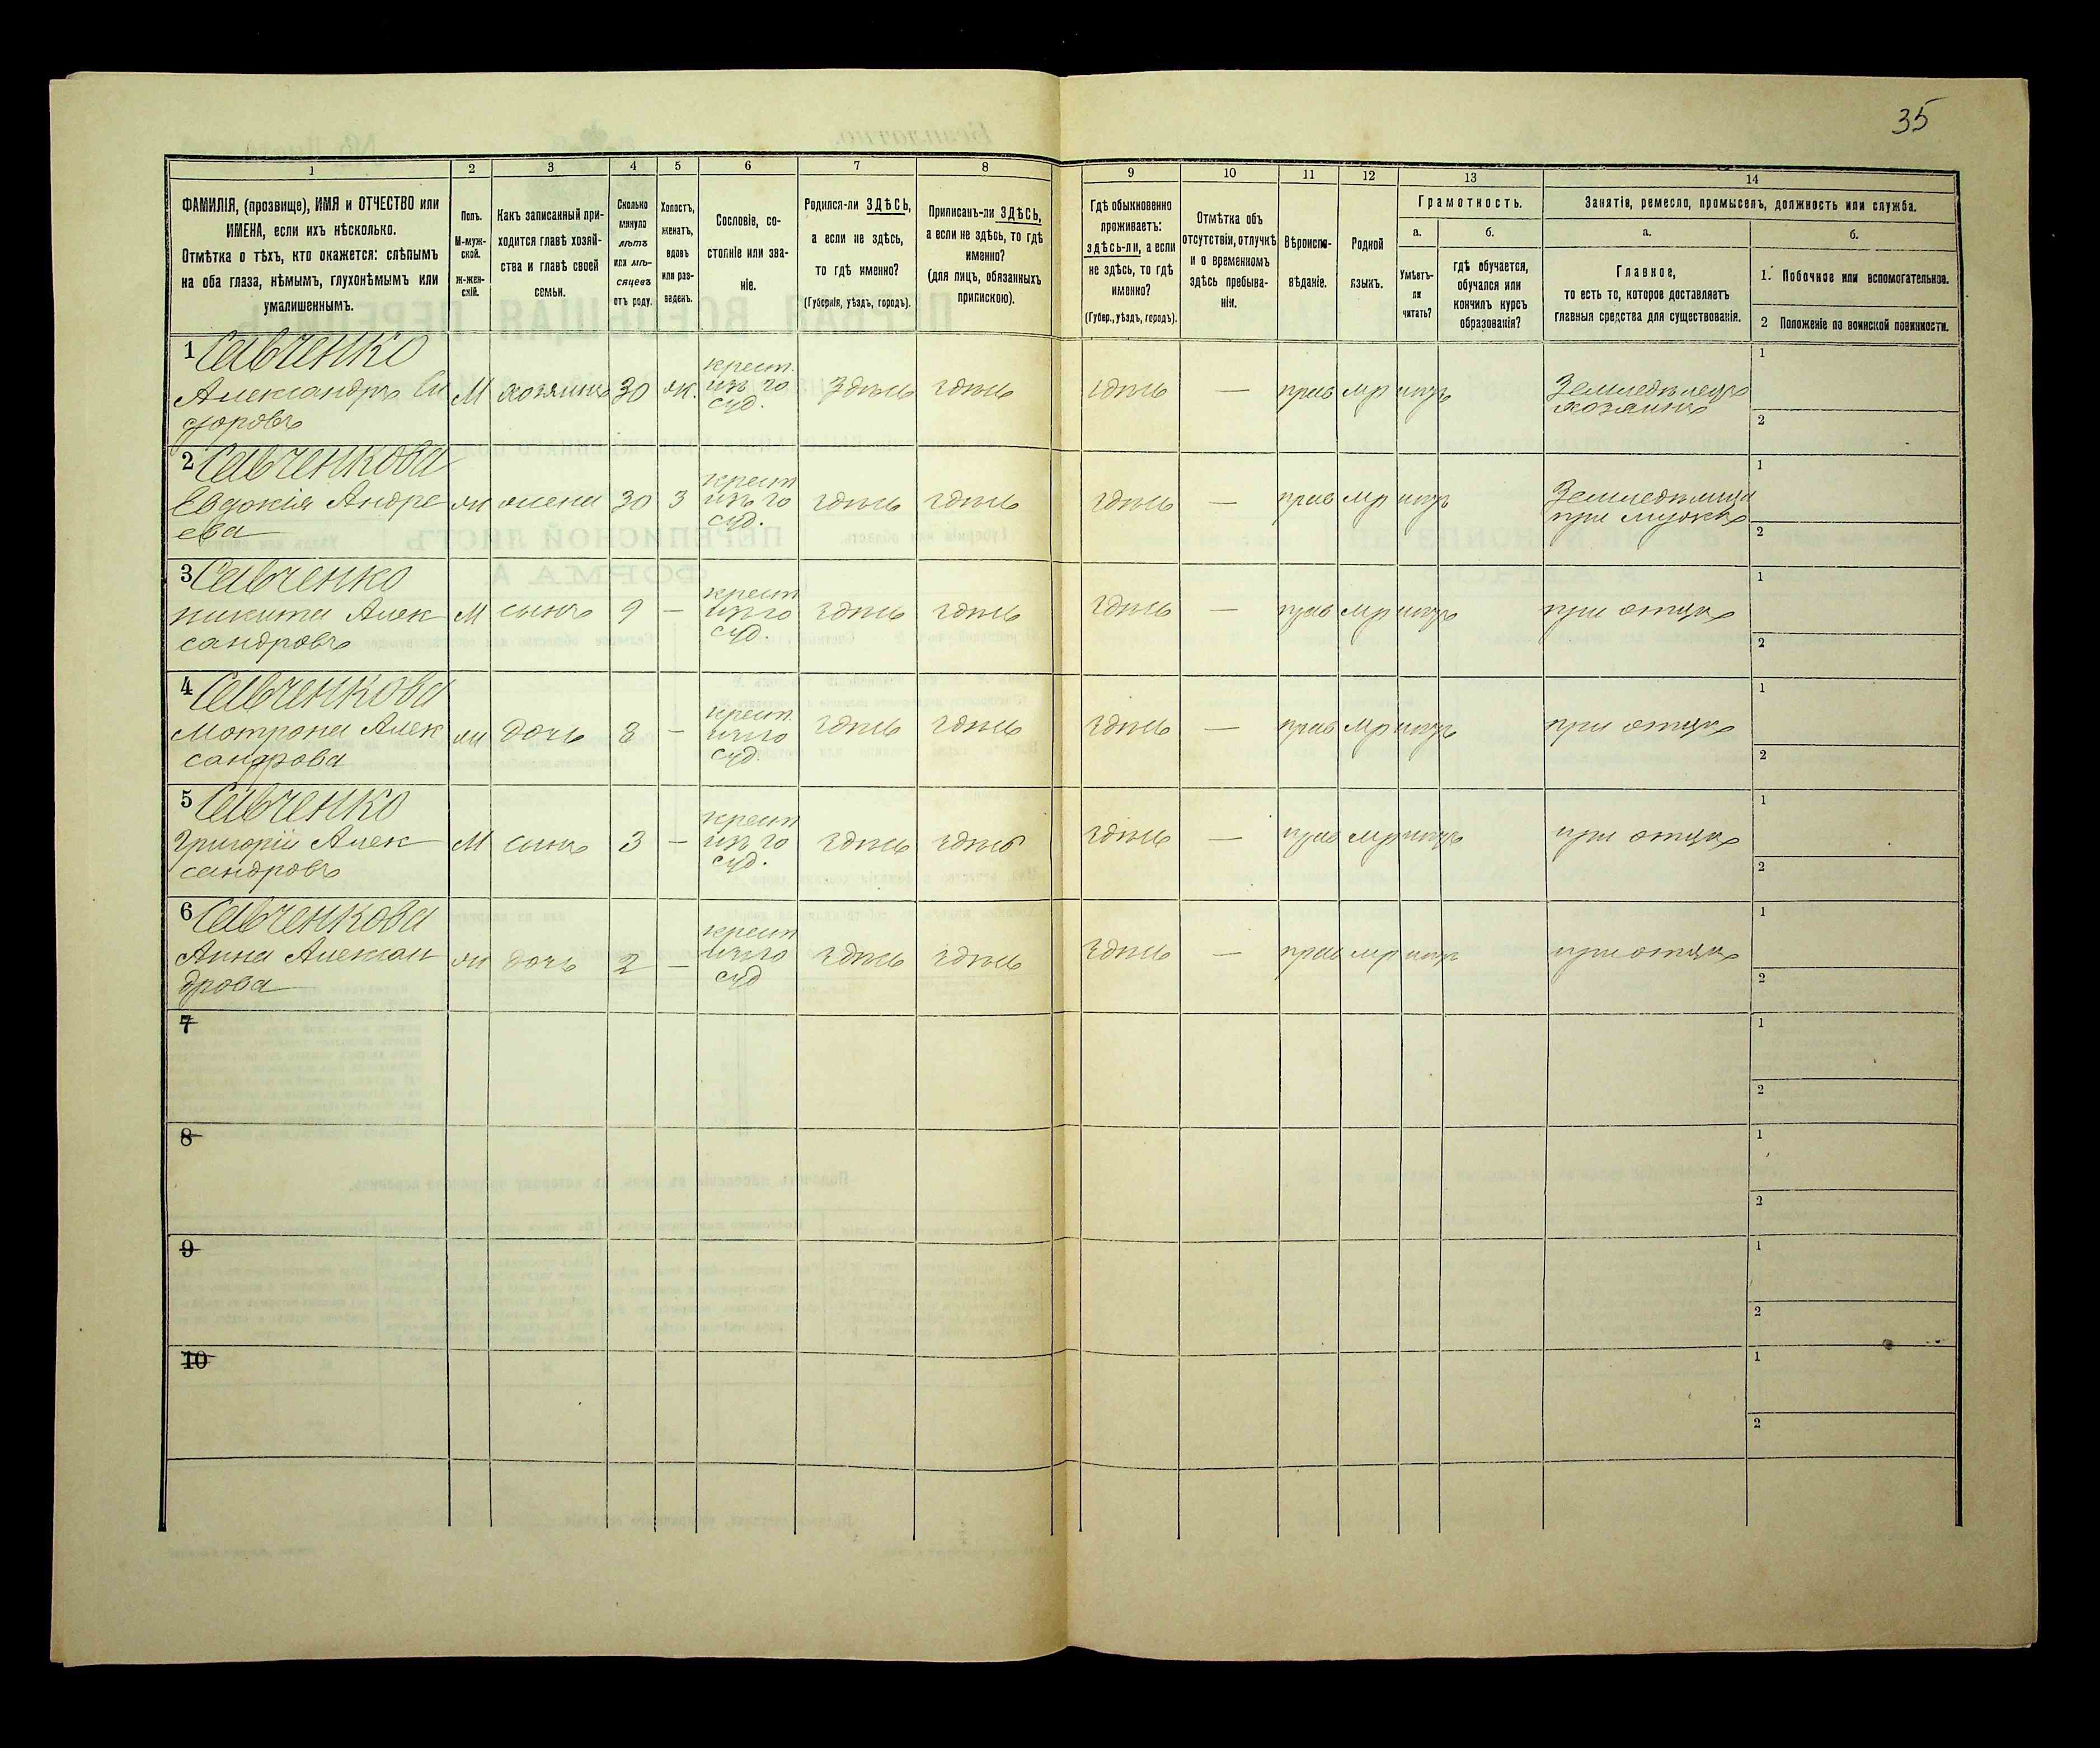 35
1
2
3
4
5
6
7
8
9
10
11
12
13
14
ФАМИЛІЯ, (прозвище), ИМЯ и ОТЧЕСТВО или
ИМЕНА, если ихъ нѣсколько.
Отмѣтка о тѣхъ, кто окажется: слѣпымъ
на оба глаза, нѣмымъ, глухонѣмымъ или
умалишеннымъ.
Полъ.
М-муж-
ской.
Ж-жен-
скій.
Какъ записанный при-
ходится главѣ хозяй-
ства и главѣ своей
семьи.
Сколько
минуло
лѣтъ
или мѣ-
сяцевъ
отъ роду.
Холостъ,
женатъ,
вдовъ
или раз-
веденъ.
Сословіе, со-
стояніе или зва-
ніе.
Родился-ли ЗДѢСЬ,
а если не здѣсь,
то гдѣ именно?
(Губернія, уѣздъ, городъ).
Приписанъ-ли ЗДѢСЬ,
а если не здѣсь, то гдѣ
именно?
(для лицъ, обязанныхъ
припискою).
Гдѣ обыкновенно
проживаетъ:
здѣсь-ли, а если
не здѣсь, то гдѣ
именно?
(Губер., уѣздъ, городъ).
Отмѣтка объ
отсутствіи, отлучкѣ
и о временномъ
здѣсь пребыва-
ніи.
Вѣроиспо-
вѣданіе.
Родной
языкъ.
Грамотность.
а.
б.
Умѣетъ-
ли
читать?
гдѣ обучается,
обучался или
кончилъ курсъ
образованія?
Занятіе, ремесло, промыселъ, должность или служба.
а.
б.
Главное,
то есть то, которое доставляетъ
главныя средства для существованія.
1. Побочное или вспомогательное.
2 Положеніе по воинской повинности.
1 Савченко
Александръ Си
доровъ
М хозяинъ 30 ж.
крест.
изъ го
суд.
Здѣсь здѣсь здѣсь — прав мр
Земледѣлецъ
хозяинъ
1
2
2 Савченкова
Евдокія Андре
ева
ж жена 30 З
крест
изъ го
суд.
здѣсь здѣсь здѣсь — прав мр
Земледѣлица
при мужѣ
1
2
3 Савченко
Никита Алек
сандровъ
М сынъ 9 —
крест
изъ го
суд.
здѣсь здѣсь здѣсь — прав мр
при отцѣ
1
2
4 Савченкова
Мотрона Алек
сандрова
ж дочь 8 —
крест.
изъ го
суд.
здѣсь здѣсь здѣсь — прав мр
при отцѣ
1
2
5 Савченко
Григорій Алек
сандровъ
М сынъ 3 —
крест
изъ го
суд.
здѣсь здѣсь здѣсь — прав мр
при отцѣ
1
2
6 Савченкова
Анна Алексан
дрова
ж дочь 2 —
крест
изъ го
суд
здѣсь здѣсь здѣсь — прав мр
при отцѣ
1
2
7
1
2
8
1
2
9
1
2
10
1
2